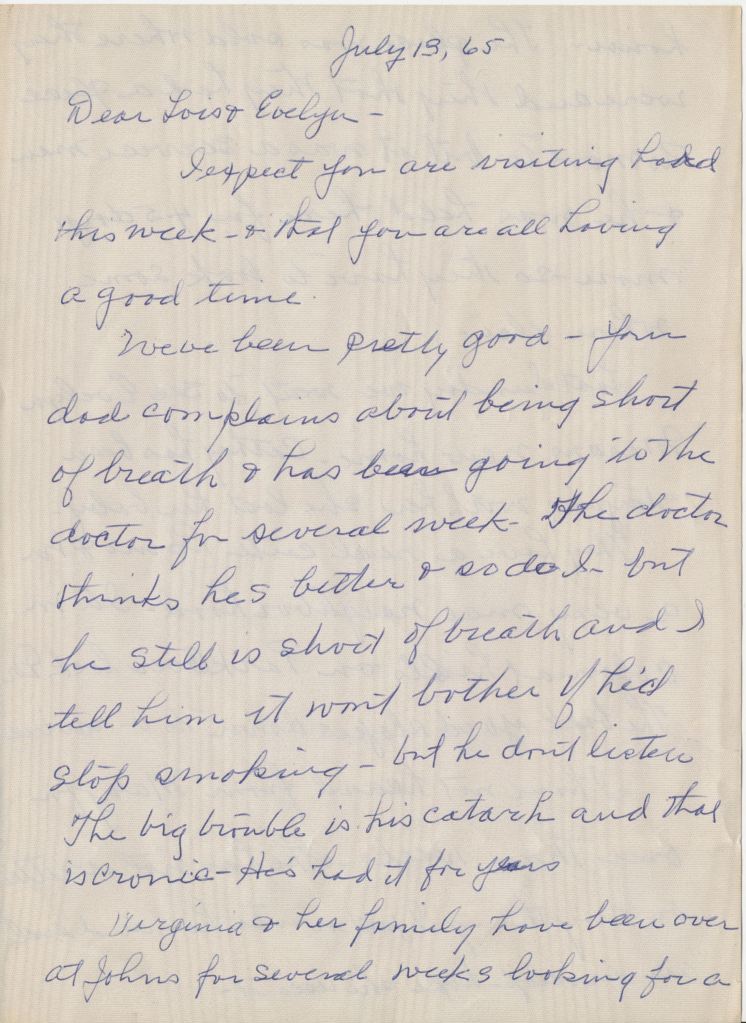 July 13, 65
Dear Lois & Evelyn -
I expect you are visiting
this week - & that you are all having
a good time.
We've been pretty good - your
dad complains about being short
of breath & has been going to the
doctor for several week - The doctor
thinks hes better & so do I - but
he still is short of breath and I
tell him it wont bother if he'd
stop smoking - but he dont listen
The big trouble is his catarh and that
is cronic - He's had it for years
Virginia & her family have been over
at Johns for several weeks looking for a